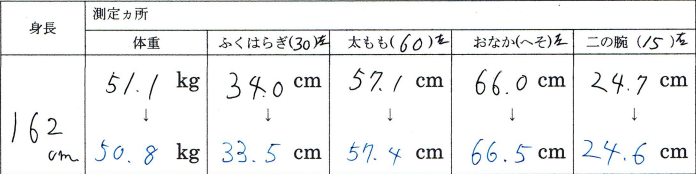 身長 測定ヵ所
体重 ふくはらぎ(30)左 太もも(60)左 おなか(へそ)左 二の腕 (15)左
51.1 kg 34.0 cm 57.1 cm 66.0 cm 24.7 cm
↓ ↓ ↓ ↓ ↓
162 cm 50.8 kg 33.5 cm 57.4 cm 66.5 cm 24.6 cm